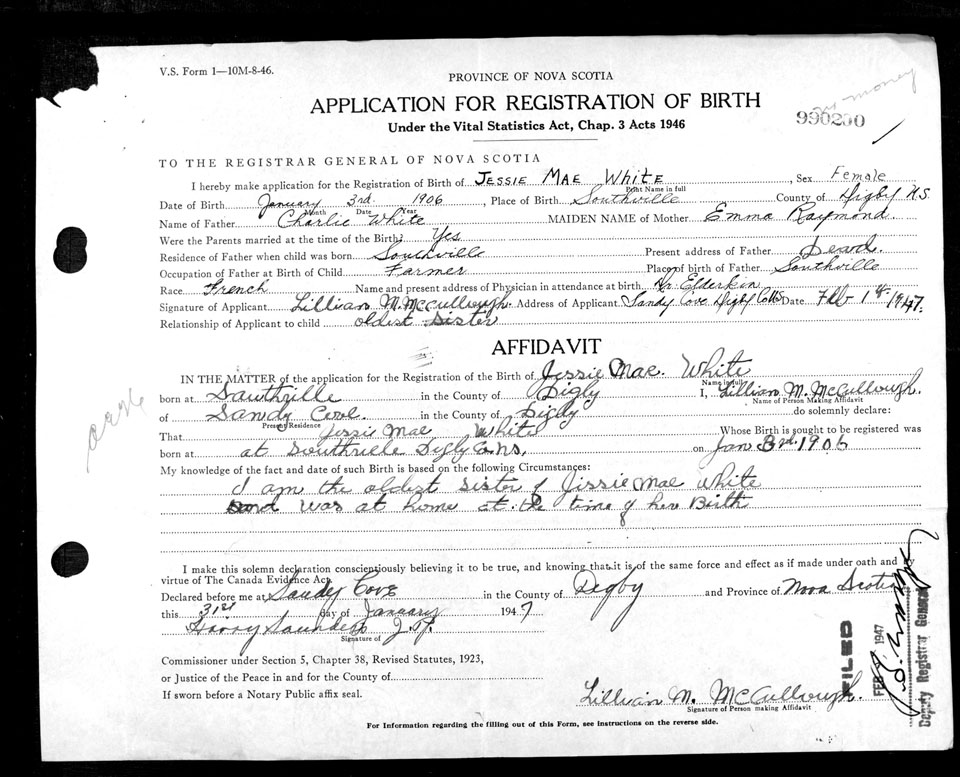 V.S. Form 1—10M-8-46.
PROVINCE OF NOVA SCOTIA
no money
APPLICATION FOR REGISTRATION OF BIRTH
990230
Under the Vital Statistics Act, Chap. 3 Acts 1946
TO THE REGISTRAR GENERAL OF NOVA SCOTIA
I hereby make application for the Registration of Birth of JESSIE MAE WHITE, Sex Female
Print Name in full
Date of Birth January 3rd 1906, Place of Birth Southville County of Digby N.S.
Month Date Year
Name of Father Charlie White MAIDEN NAME of Mother Emma Raymond
Were the Parents married at the time of the Birth? Yes
Residence of Father when child was born Southville Present address of Father Dead.
Occupation of Father at Birth of Child Farmer Place of birth of Father Southville
Race French Name and present address of Physician in attendance at birth Dr Elderkin
Signature of Applicant Lillian M. McCullough Address of Applicant Sandy Cove Digby Co NS Date Feb 1st 1947.
Relationship of Applicant to child oldest sister
AFFIDAVIT
IN THE MATTER of the application for the Registration of the Birth of Jessie Mae White
Name in full
born at Southville in the County of Digby I, Lillian M. McCullough.
Name of Person Making Affidavit
of Sandy Cove. in the County of Digby do solemnly declare:
Present Residence
That Jessie Mae White Whose Birth is sought to be registered was
born at at Southville Digby Co NS, on Jan 3rd 1906
My knowledge of the fact and date of such Birth is based on the following Circumstances:
I am the oldest sister of Jessie Mae White
and was at home at the time of her Birth
I make this solemn declaration conscientiously believing it to be true, and knowing that it is of the same force and effect as if made under oath and by
virtue of The Canada Evidence Act.
Declared before me at Sandy Cove in the County of Digby and Province of Nova Scotia
this 31st day of January 1947
Harry Saunders J.P.
Signature of
Commissioner under Section 5, Chapter 38, Revised Statutes, 1923,
or Justice of the Peace in and for the County of
If sworn before a Notary Public affix seal.
Lillian M. McCullough.
Signature of Person making Affidavit
FILED
FEB 1947
Deputy Registrar General
For Information regarding the filling out of this Form, see instructions on the reverse side.